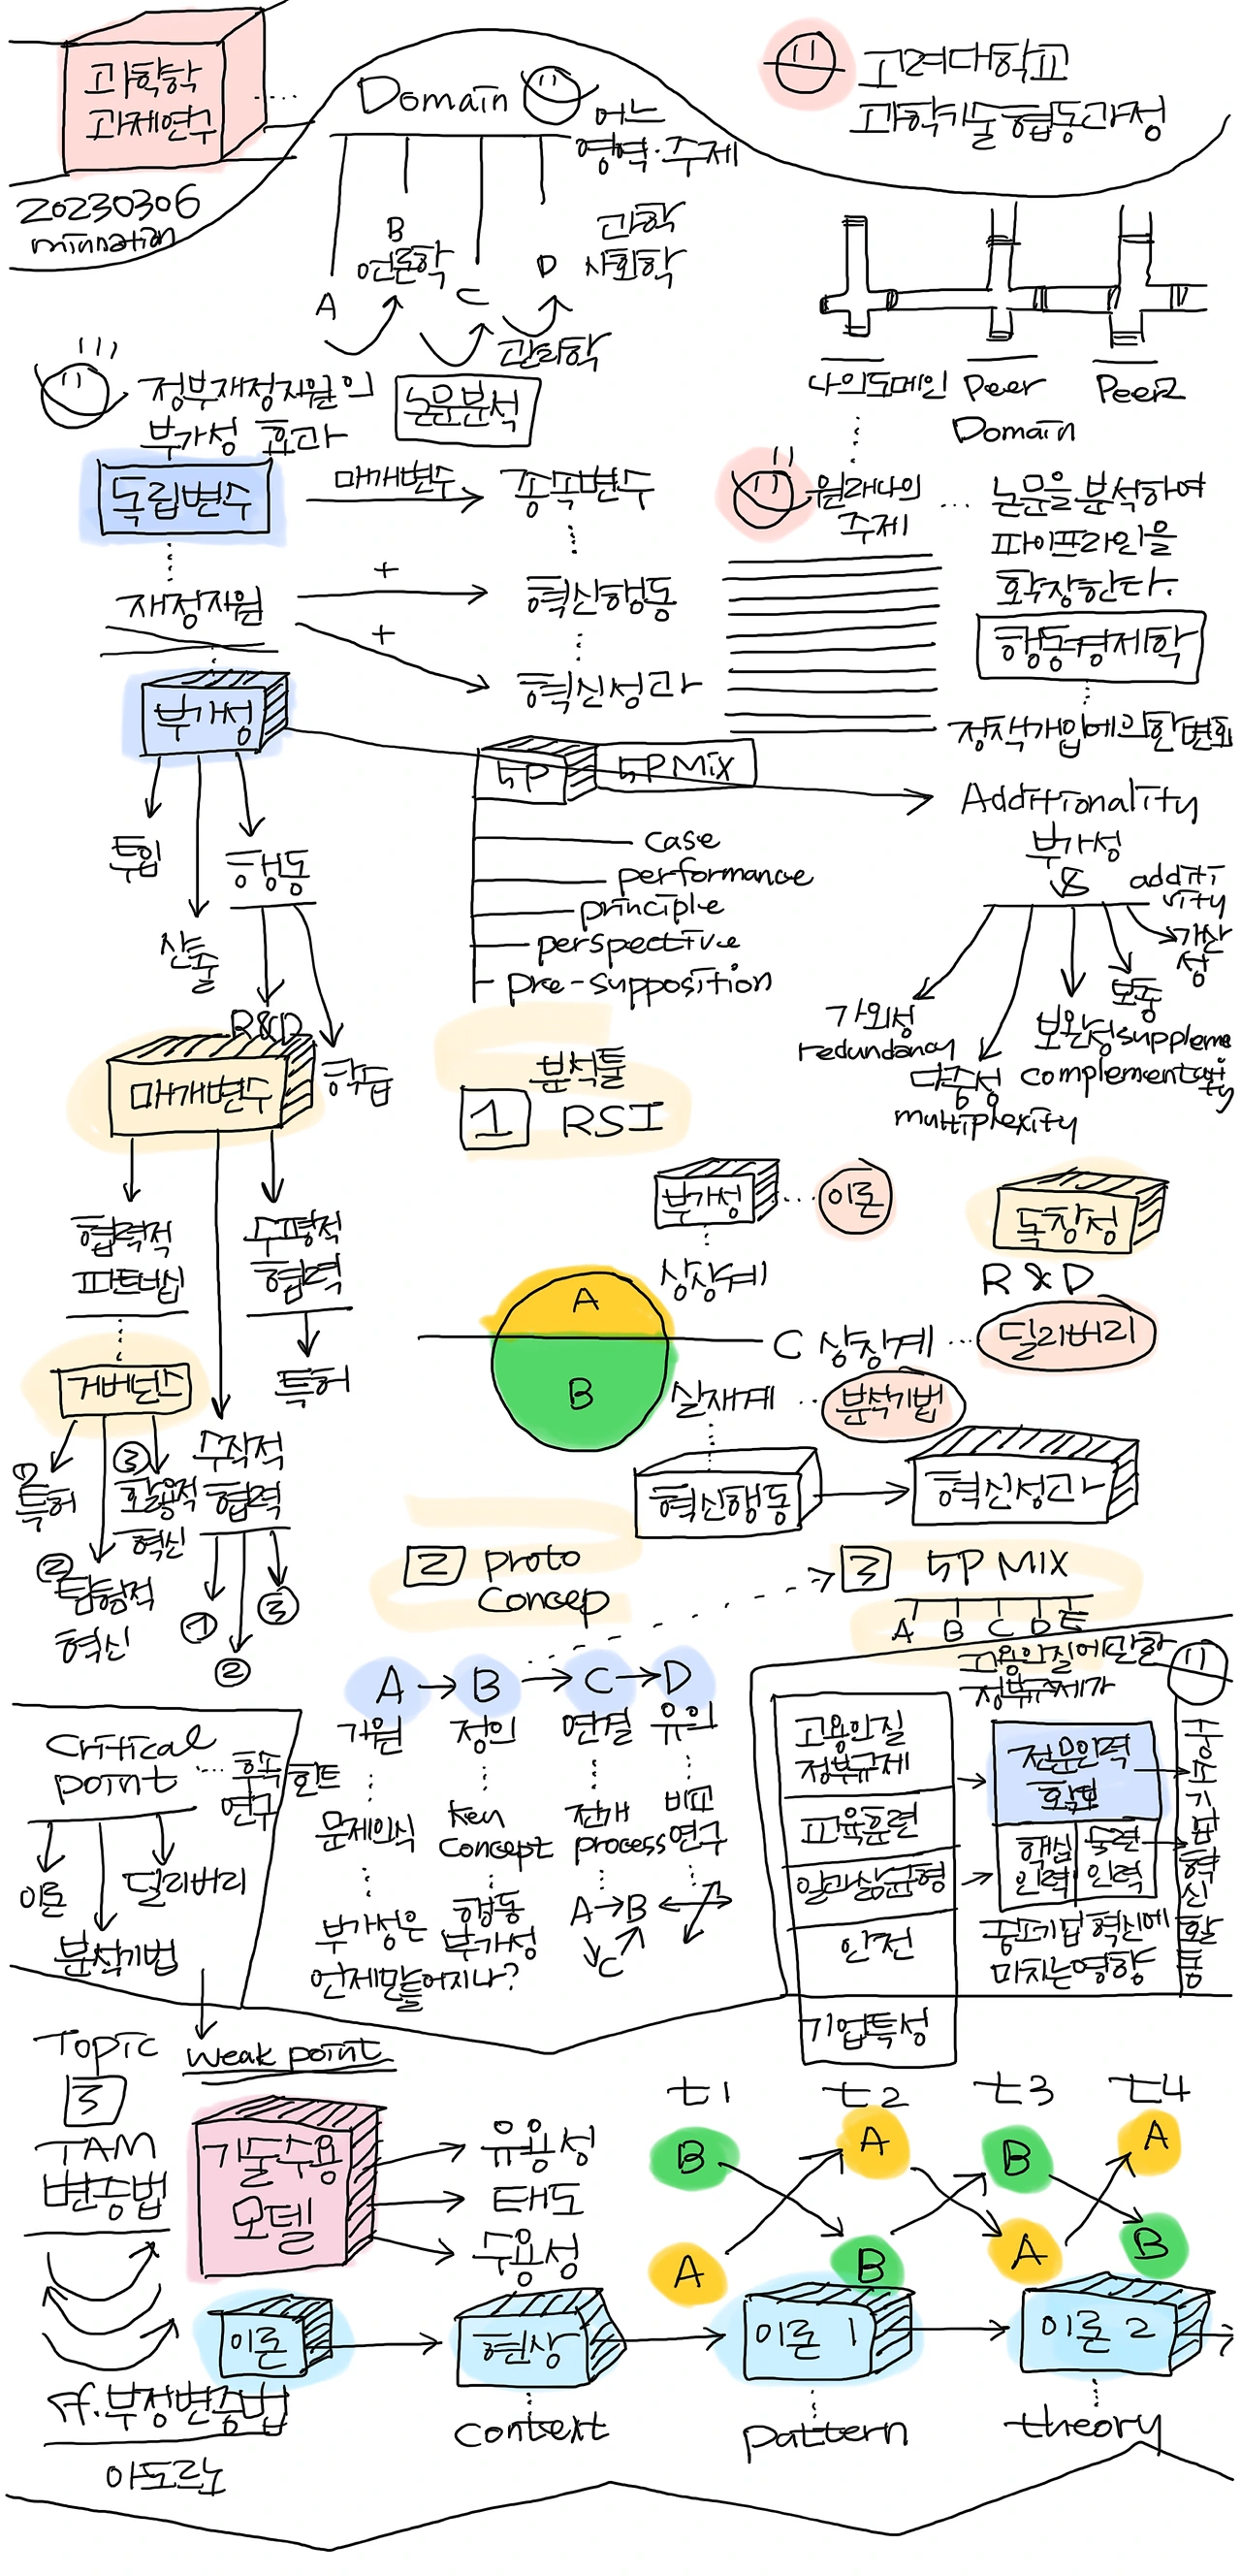 과학학
과제연구
20230306
minnation
Domain
어느
영역·주제
A
B
언론학
C
관리학
D
과학
사회학
고려대학교
과학기술협동과정
나의도메인
Peer
Peer2
Domain
정부재정지원의
부가성 효과
논문분석
독립변수
매개변수
종속변수
재정지원
+
혁신행동
+
혁신성과
원래나의
주제
논문을 분석하여
파이프라인을
확장한다.
행동경제학
정책개입에의한변화
부가성
투입
산출
행동
R&D
학습
5P
5P Mix
case
performance
principle
perspective
pre-supposition
Additionality
부가성
additi
vity
가산
성
가외성
redundancy
다중성
multiplexity
보완성
complementarity
보충
suppleme
매개변수
협력적
파트너십
수평적
협력
특허
거버넌스
① 특허
② 탐험적
혁신
③ 활용적
혁신
수직적
협력
①
②
③
분석툴
1 RSI
부가성
이론
상상계
A
B
C 상징계
딜리버리
실재계
분석기법
혁신행동
혁신성과
독창성
R&D
2 proto
concep
A
B
C
D
기원
정의
연결
유의
문제의식
Key
Concept
전개
process
비교
연구
부가성은
언제만들어지나?
행동
부가성
A
B
C
3 5P MIX
A B C D E
고용안질에 관한
정부규제가
고용안질
정부규제
교육훈련
일과삶균형
안전
기업특성
전문인력
확보
핵심
인력
숙련
인력
중소기업 혁신에
미치는영향
중소기업혁신활동
Critical
point
후속
연구
힌트
이론
분석기법
딜리버리
weak point
Topic
3
TAM
변증법
기술수용
모델
유용성
태도
수용성
t1
t2
t3
t4
B
A
B
A
A
B
A
B
이론
현상
이론 1
이론 2
context
pattern
theory
cf. 부정변증법
아도르노